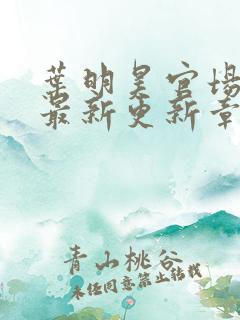 葉明昊官場
最新更新章
青山桃谷
未经同意禁止转载